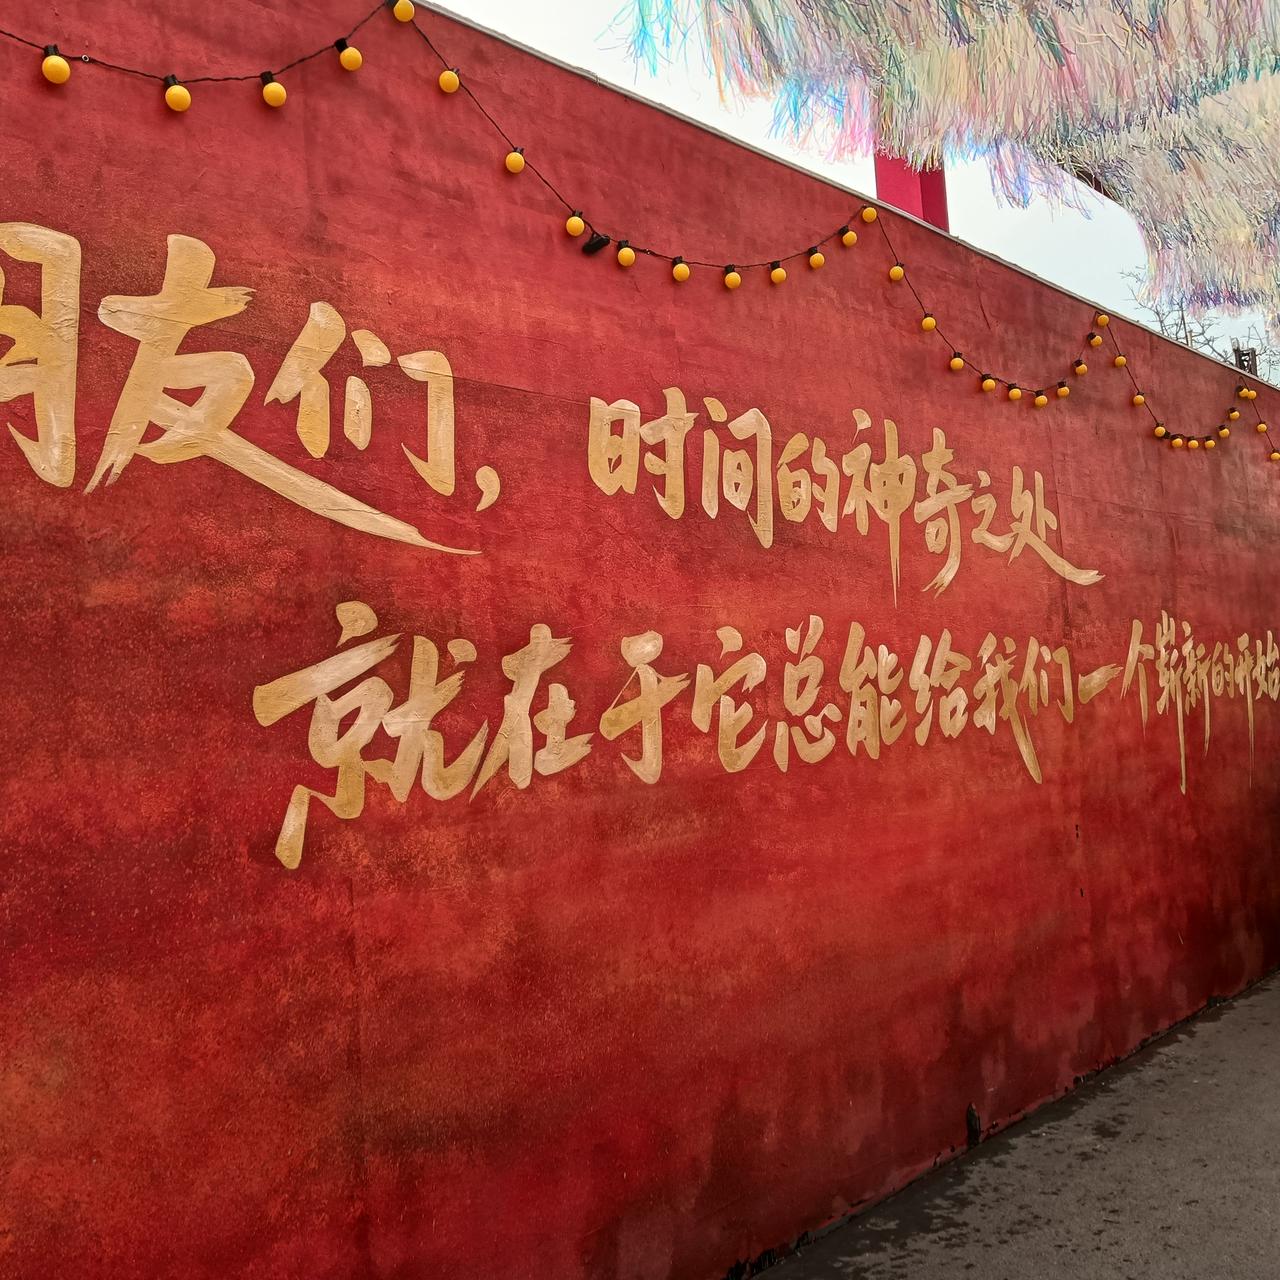 朋友们，时间的神奇之处
就在于它总能给我们一个崭新的开始